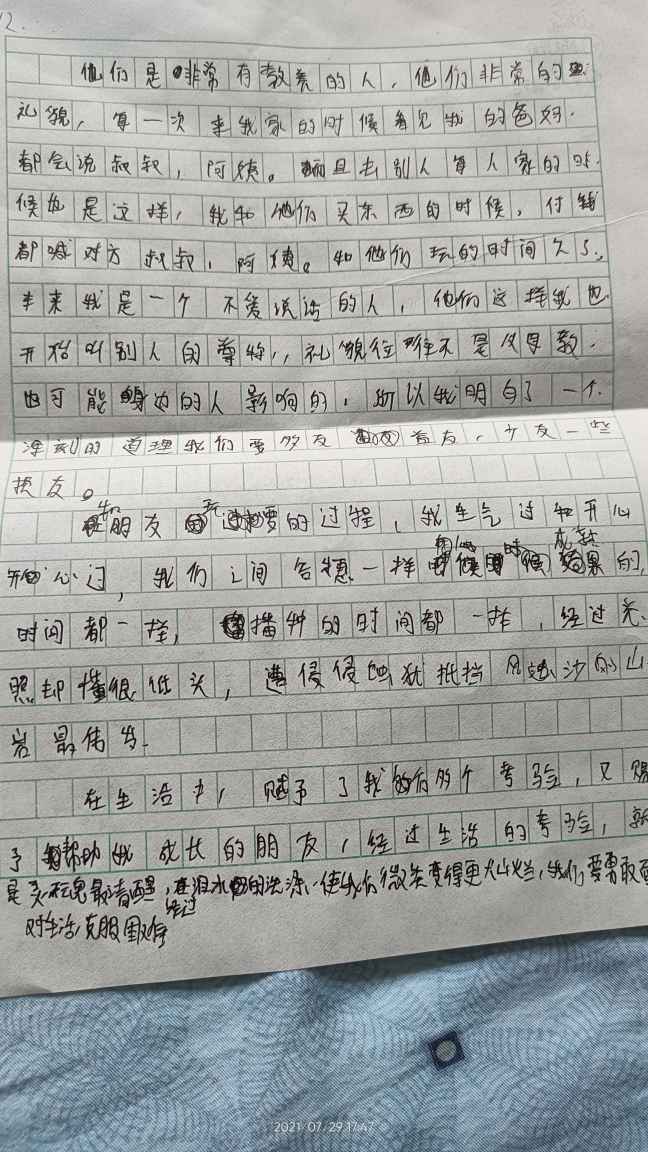 12.
他们是非常有教养的人，他们非常的
礼貌，第一次来我家的时候看见我的爸妈.
都会说叔叔，阿姨。而且去别人第人家的时.
候也是这样，我和他们买东西的时候，付钱
都喊对方叔叔，阿姨。和他们玩的时间久了.
本来我是一个不爱说话的人，他们这样我也
开始叫别人的尊称，礼貌往往不是父母教.
也可能身边的人影响的，所以我明白了一个.
深刻的道理我们要多友益友，少友一些
损友。
和朋友玩耍的过程，我生气过和开心
开心过，我们之间合想一样 的
时间都一样，播种的时间都一样，经过光.
照却懂很低头，遭侵侵蚀犹抵挡风沙的山
岩最伟岸.
在生活中，赋予了我的有多个考验，又赐
予帮助我成长的朋友，经过生活的考验，就
是灵魂最清醒，经过泪水的洗涤，使我们微笑变得更灿烂，我们要勇敢面
对生活，克服困难
2021.07.29 17:47